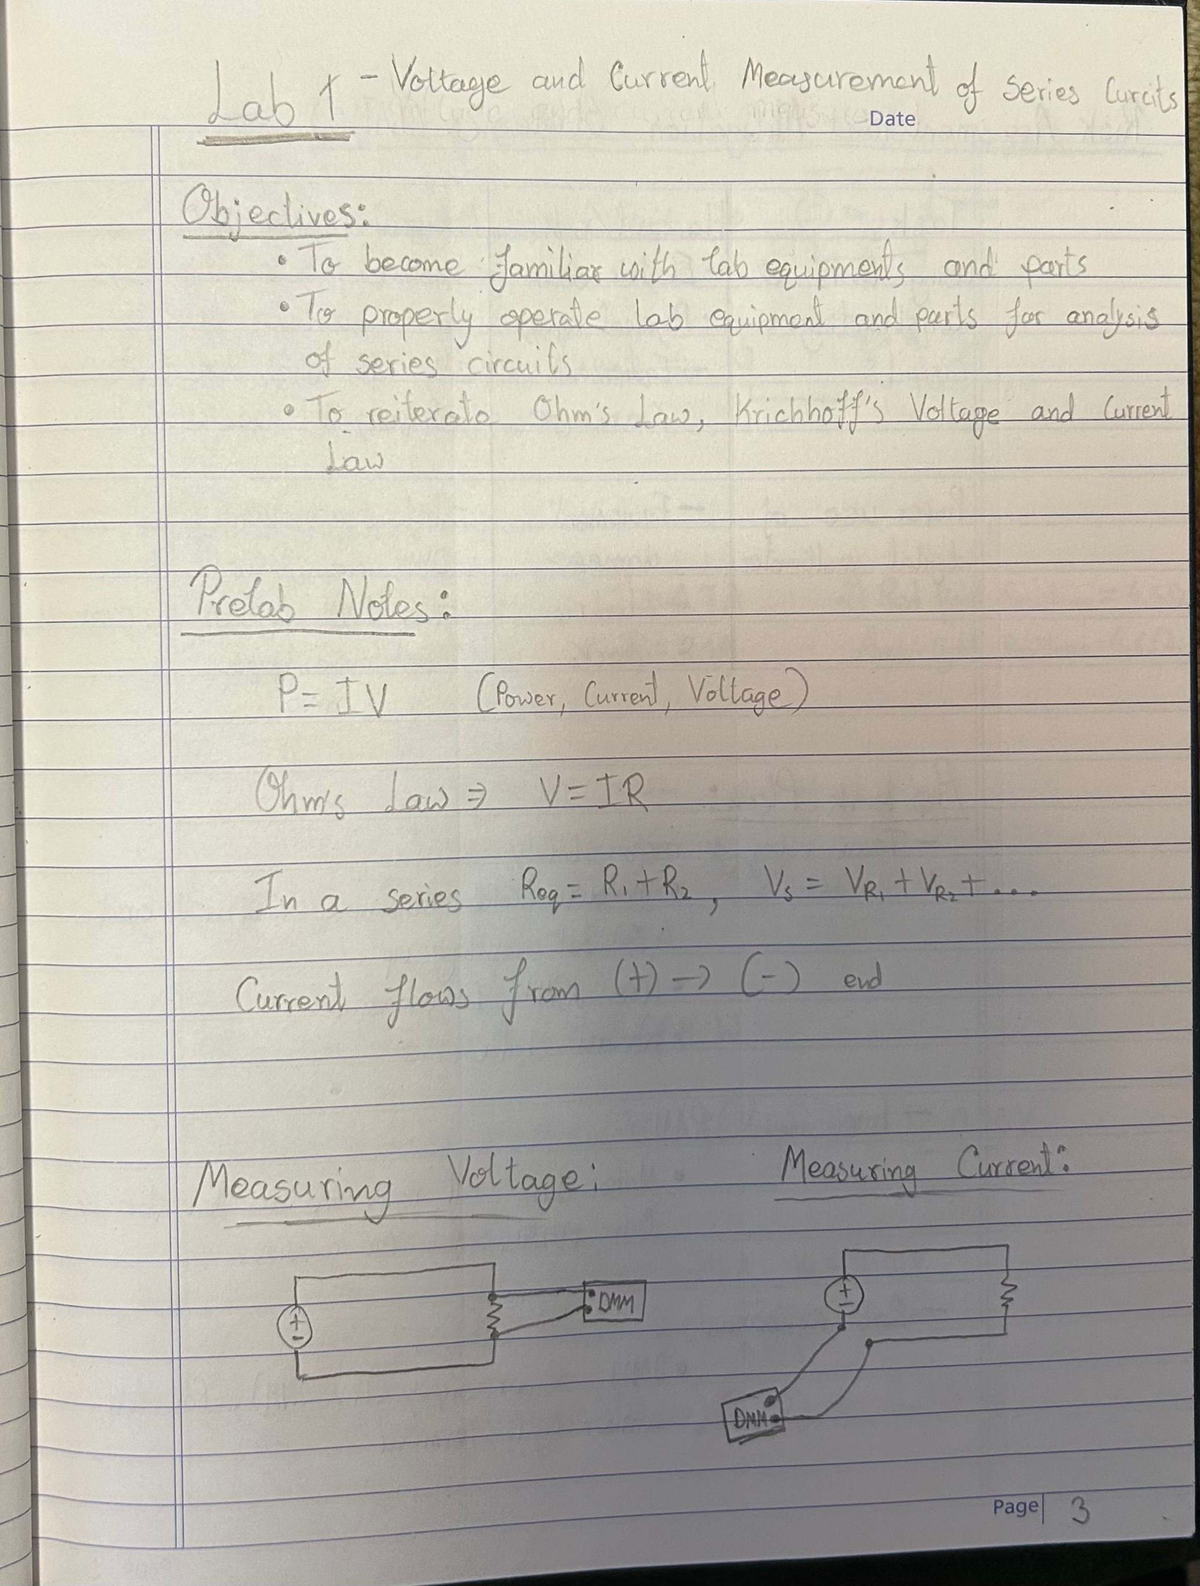 Lab 1 - Voltage and Current Measurement of Series Curcits
Date
Objectives:
• To become familiar with lab equipments and parts
• To properly operate lab equipment and parts for analysis
of series circuits
• To reiterate Ohm's Law, Krichhoff's Voltage and Current
Law
Prelab Notes:
P = IV (Power, Current, Voltage)
Ohm's Law ⇒ V = IR
In a series Req = R₁ + R₂, Vs = VR₁ + VR₂ + ...
Current flows from (+) → (-) end
Measuring Voltage: Measuring Current:
+ - DMM
+ -
DMM
Page 3